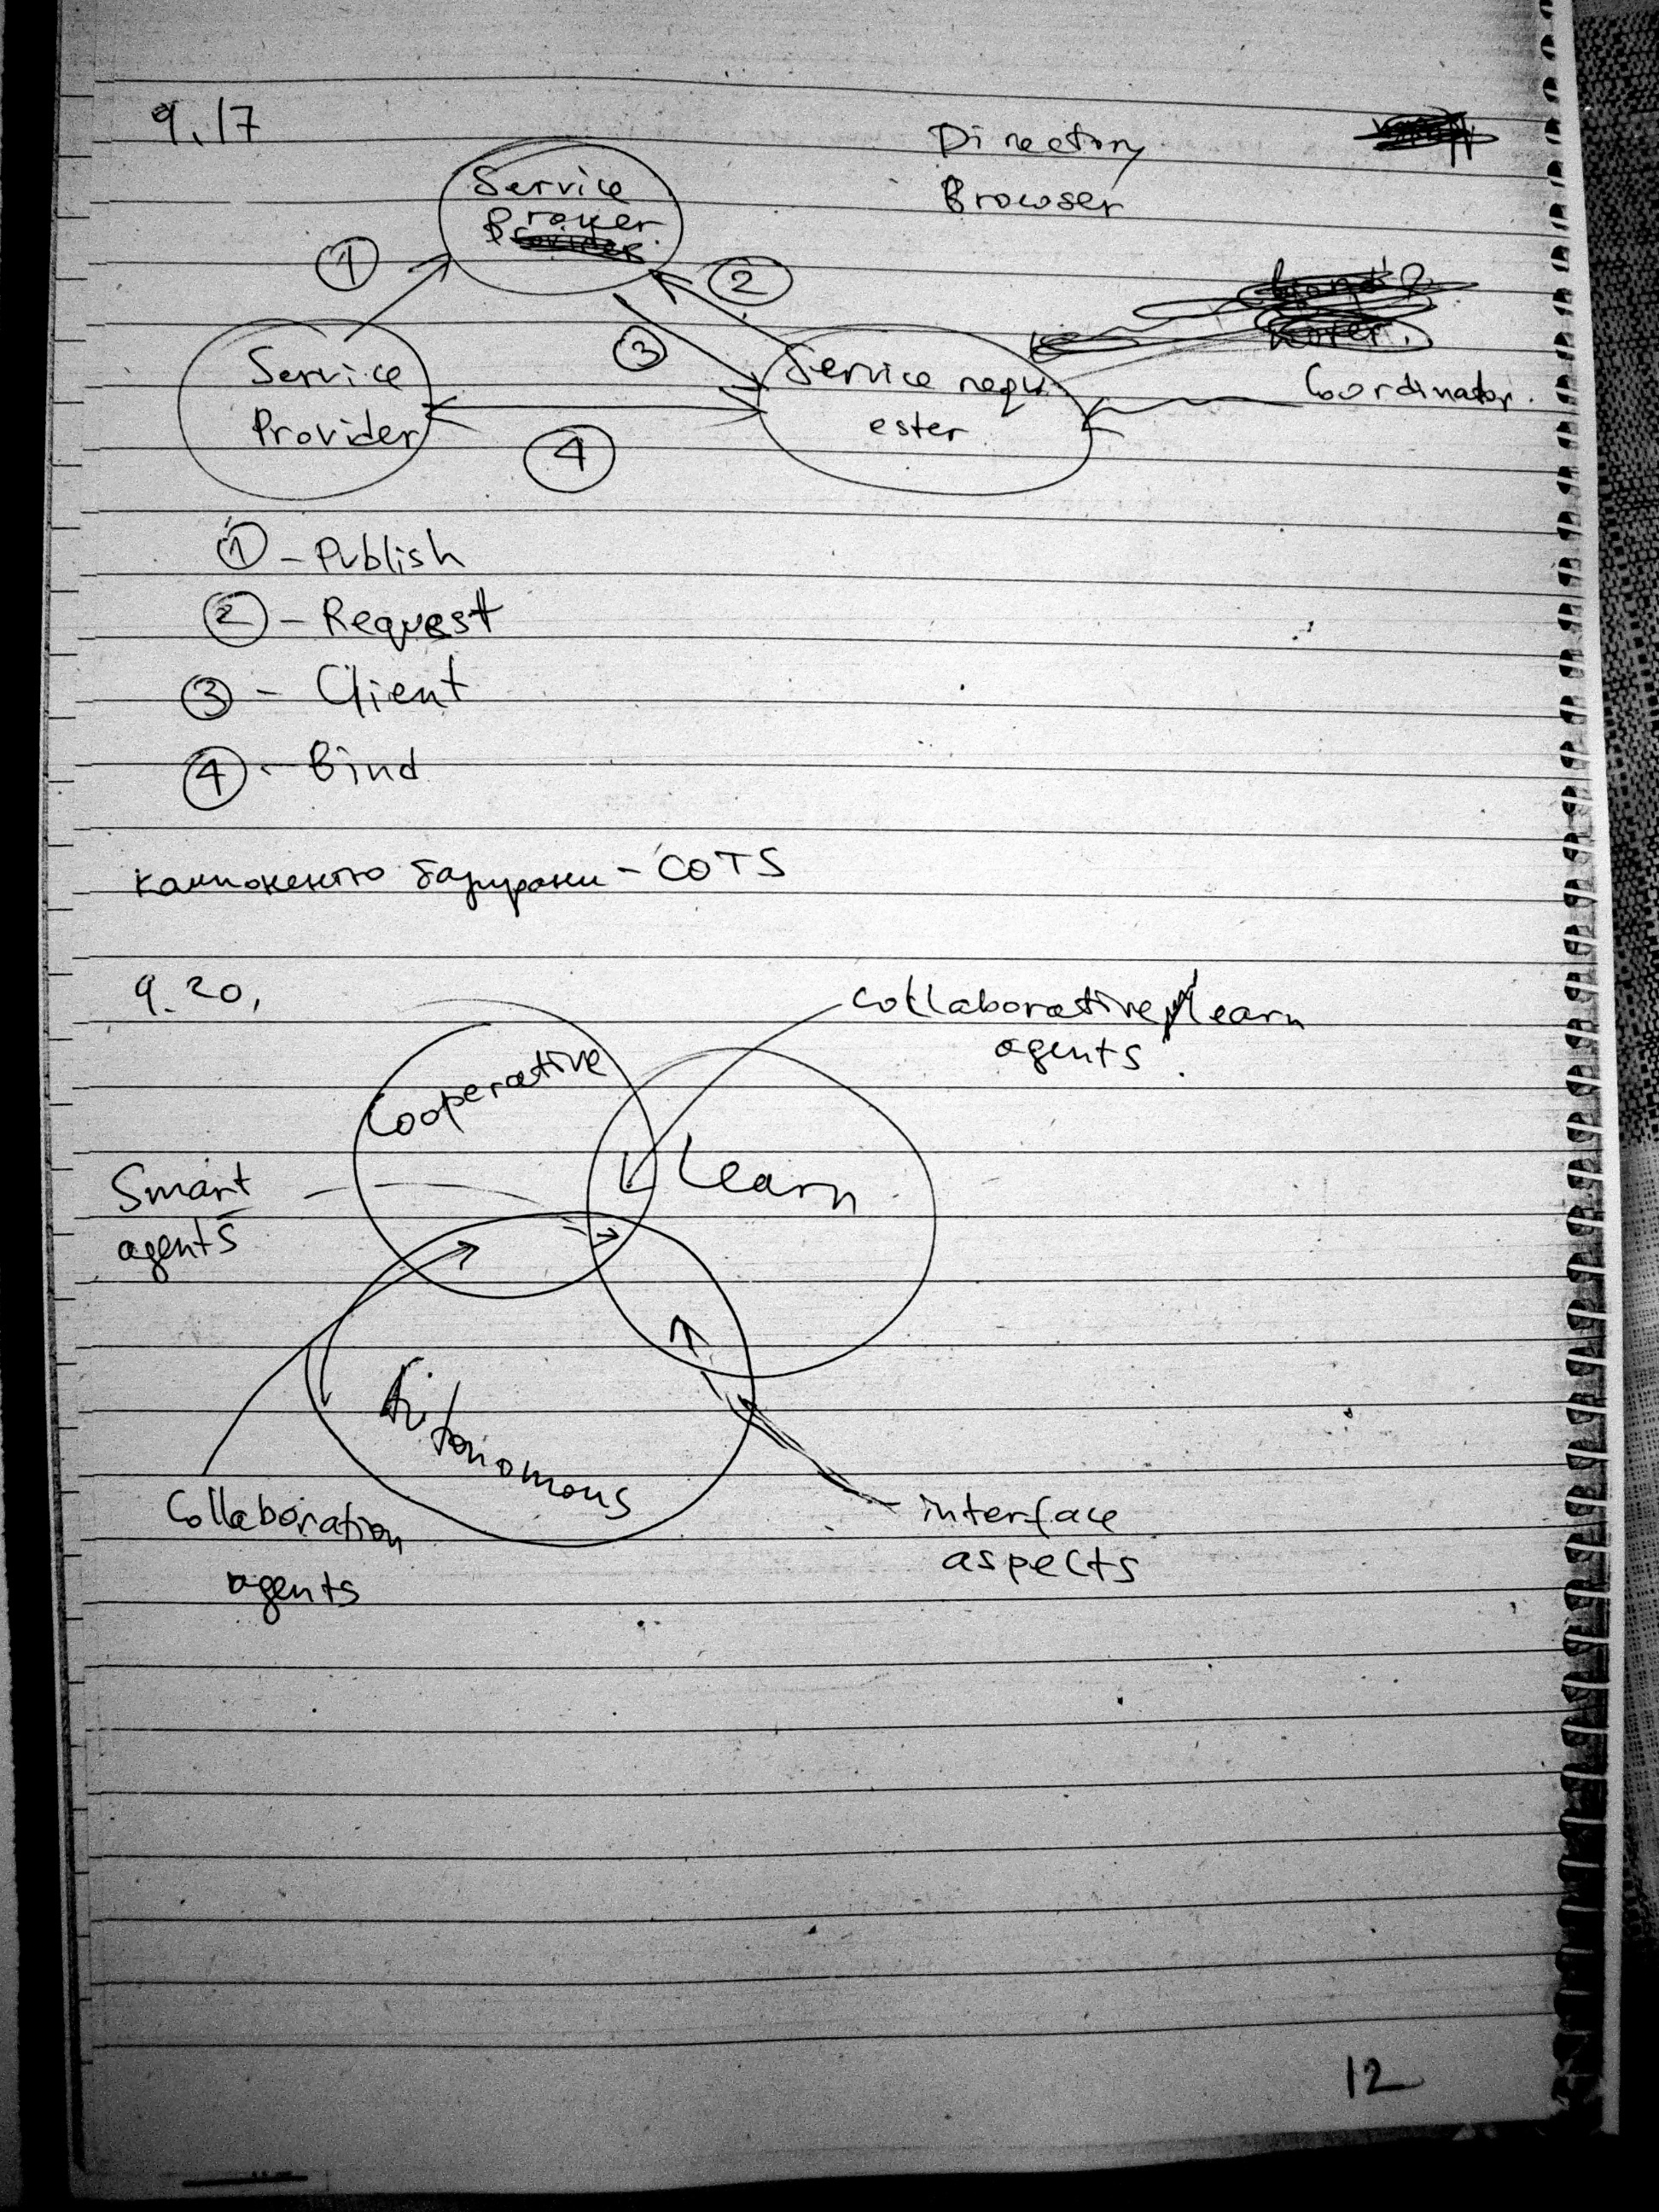 9.17
Directory
Browser
Service
Broker
①
②
③
Service
Provider
Service requ
ester
Coordinator.
④
① - Publish
② - Request
③ - Client
④ - Bind
компонентно базирани - COTS
9.20.
collaborative learn
agents
Cooperative
Learn
Smart
agents
Autonomous
Collaboration
agents
interface
aspects
12